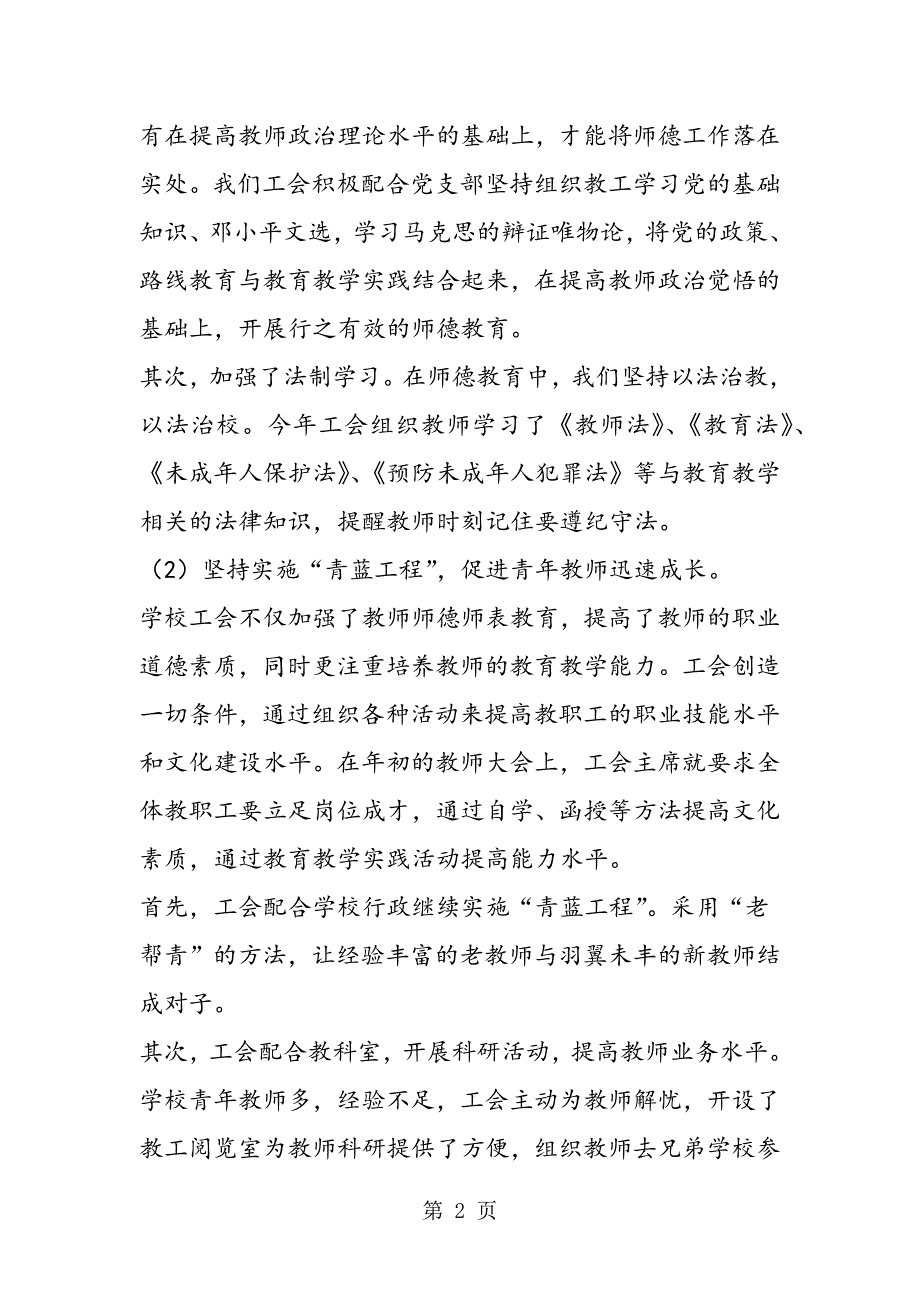 有在提高教师政治理论水平的基础上，才能将师德工作落在
实处。我们工会积极配合党支部坚持组织教工学习党的基础
知识、邓小平文选，学习马克思的辩证唯物论，将党的政策、
路线教育与教育教学实践结合起来，在提高教师政治觉悟的
基础上，开展行之有效的师德教育。
其次，加强了法制学习。在师德教育中，我们坚持以法治教，
以法治校。今年工会组织教师学习了《教师法》、《教育法》、
《未成年人保护法》、《预防未成年人犯罪法》等与教育教学
相关的法律知识，提醒教师时刻记住要遵纪守法。
（2）坚持实施“青蓝工程”，促进青年教师迅速成长。
学校工会不仅加强了教师师德师表教育，提高了教师的职业
道德素质，同时更注重培养教师的教育教学能力。工会创造
一切条件，通过组织各种活动来提高教职工的职业技能水平
和文化建设水平。在年初的教师大会上，工会主席就要求全
体教职工要立足岗位成才，通过自学、函授等方法提高文化
素质，通过教育教学实践活动提高能力水平。
首先，工会配合学校行政继续实施“青蓝工程”。采用“老
帮青”的方法，让经验丰富的老教师与羽翼未丰的新教师结
成对子。
其次，工会配合教科室，开展科研活动，提高教师业务水平。
学校青年教师多，经验不足，工会主动为教师解忧，开设了
教工阅览室为教师科研提供了方便，组织教师去兄弟学校参
第 2 页